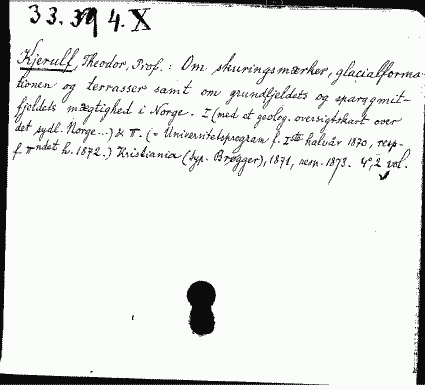 33. 4. X
Kjerulf, Theodor, Prof.: Om skuringsmærker, glacialforma-
tionen og terrasser samt om grundfjeldets og sparagmit-
fjeldets mægtighed i Norge. I (med et geolog. oversigtskart over
det sydl. Norge...) & II. (= Universitetsprogram f. Iste halvår 1870, resp.
f. IIndet h. 1872.) Kristiania (typ. Brøgger), 1871, resp. 1873. 4°, 2 vol.